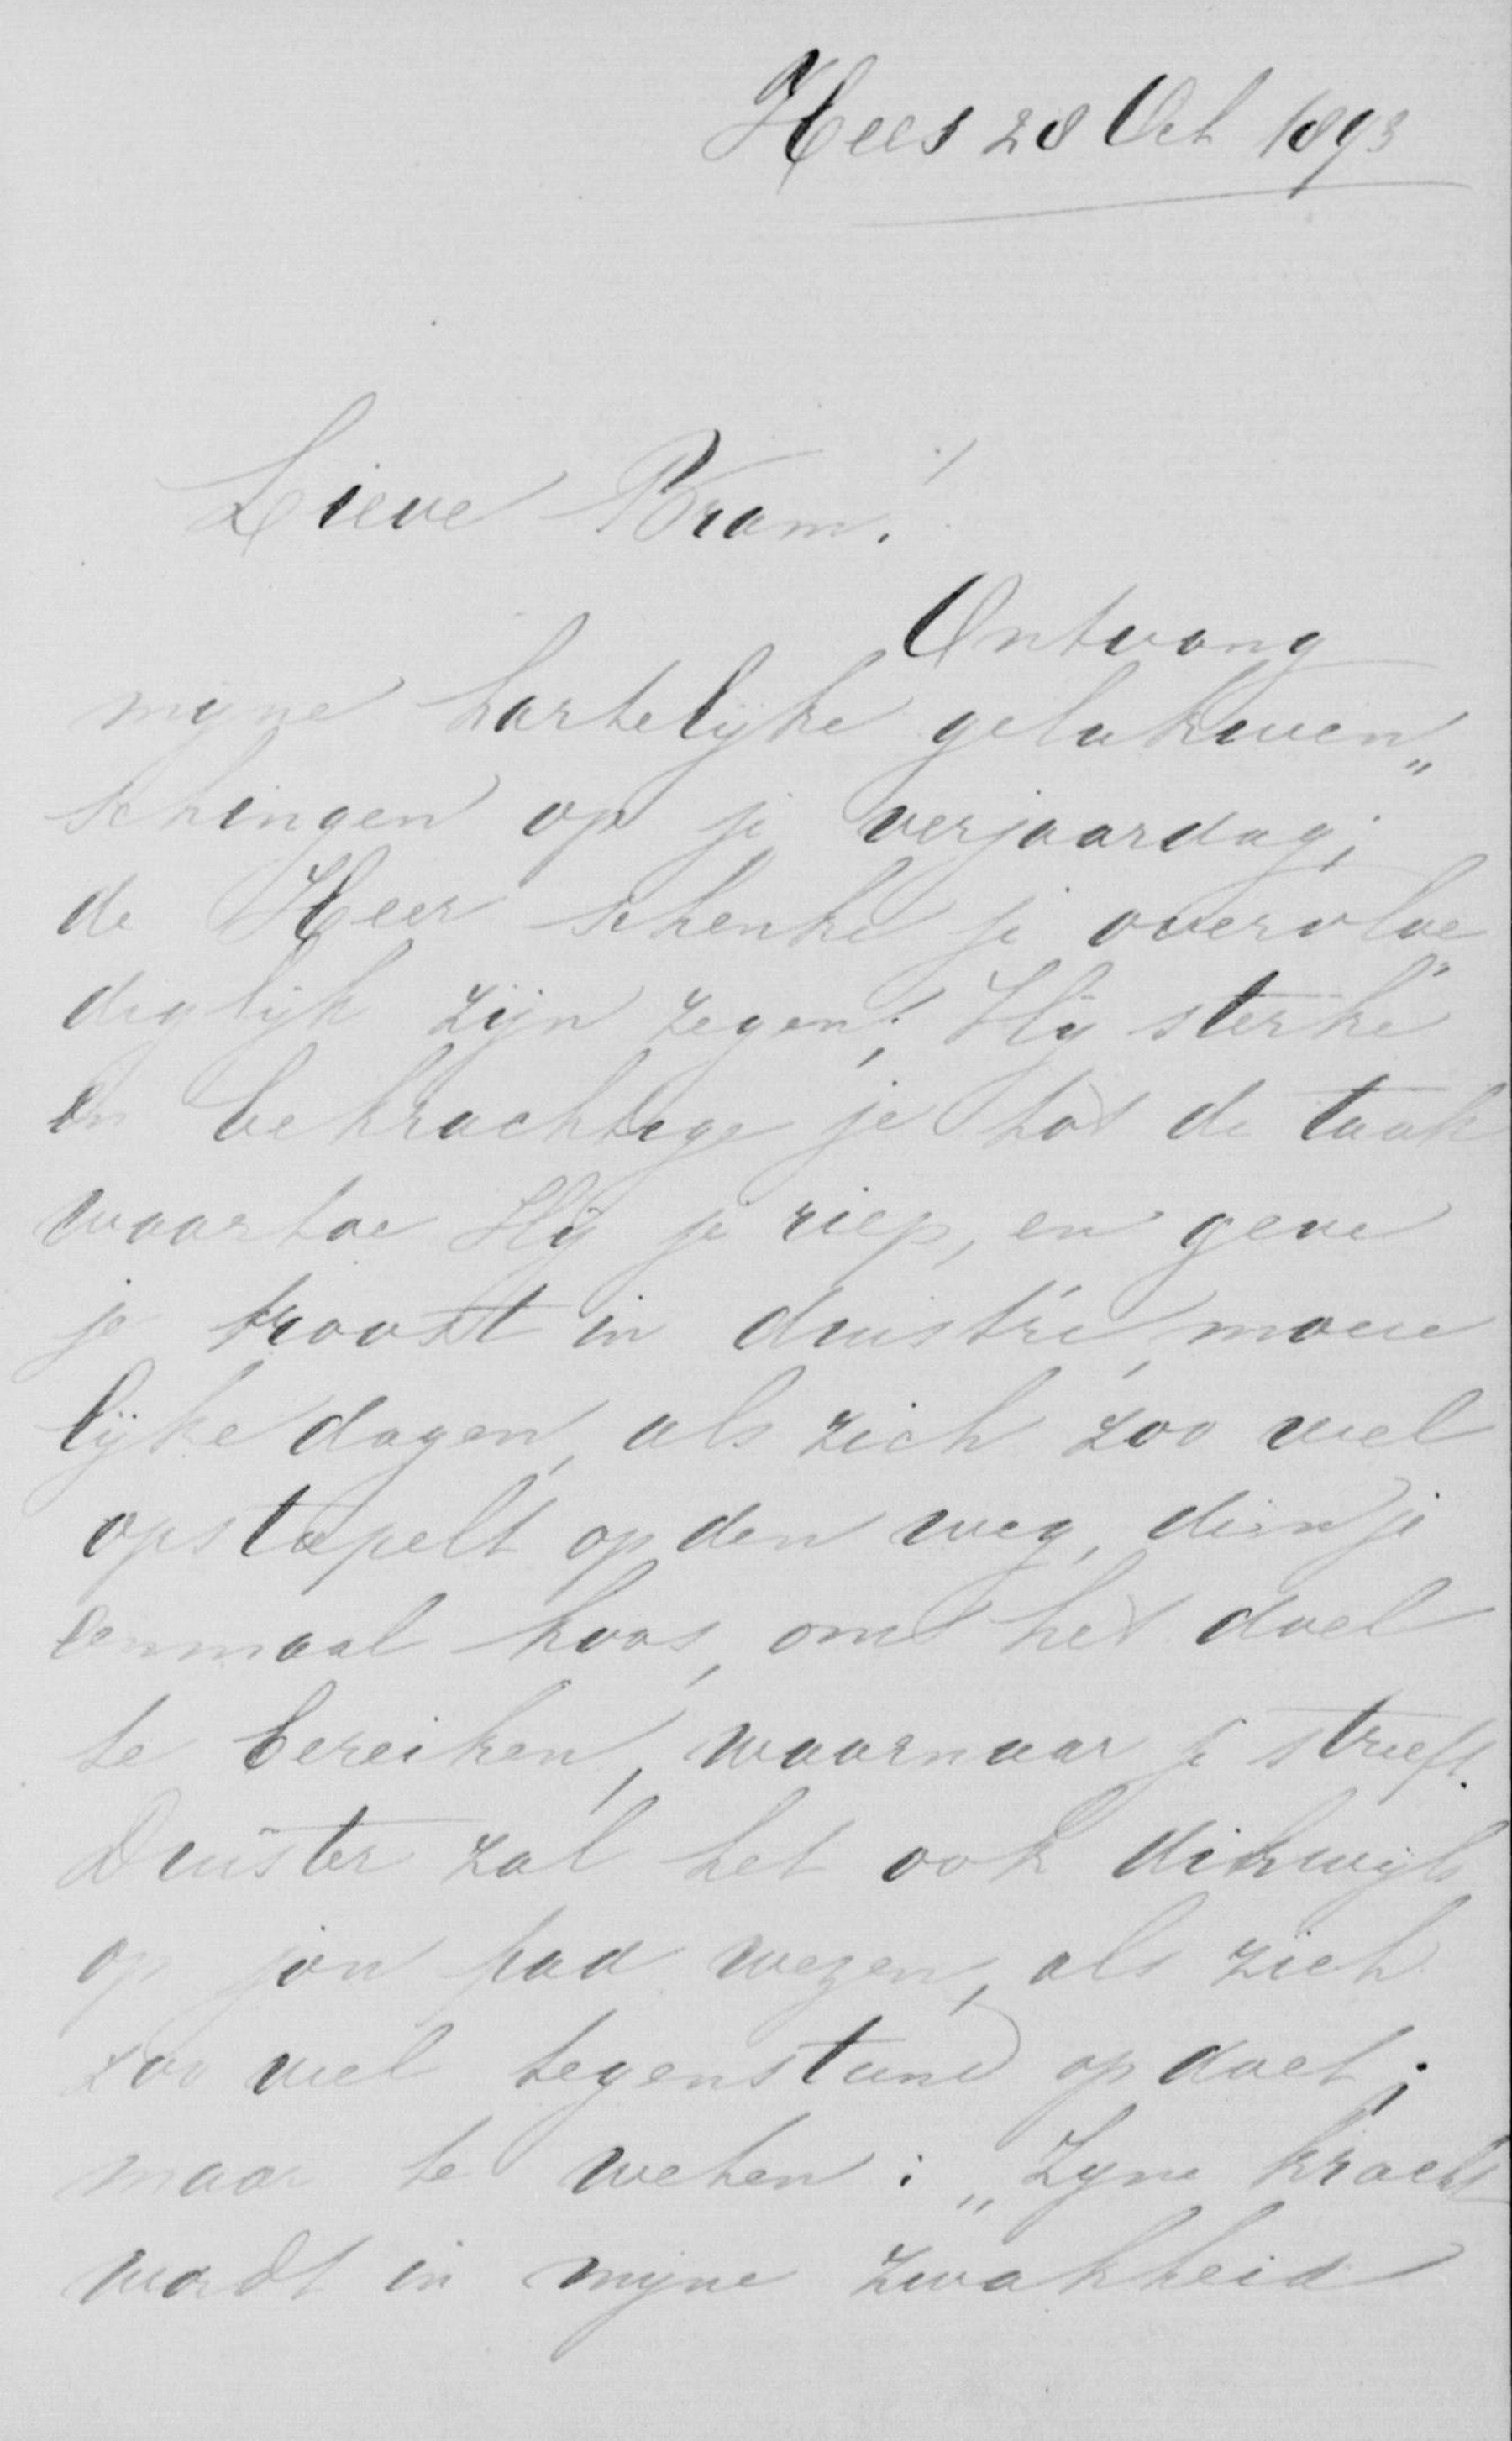 Hees 28 Oct 1893
Lieve Bram!
Ontvang
myne hartelijke gelukwen„
schingen op je verjaardag;
de Heer schenke je overvloe„
diglijk zijn zegen; Hij sterke
en bekrachtige je tot de taak
waartoe Hij je riep, en geve
je troost in duist're, moeie
lijke dagen, als zich zoo veel
opstapelt op den weg, dien je
eenmaal koos, om het doel
te bereiken, waarnaar je streeft.
Duister zal het ook dikwijls
op jou pad wezen, als zich
zoo veel tegenstand opdoet;
maar te weten: „Zyne kracht
wordt in mijne zwakheid